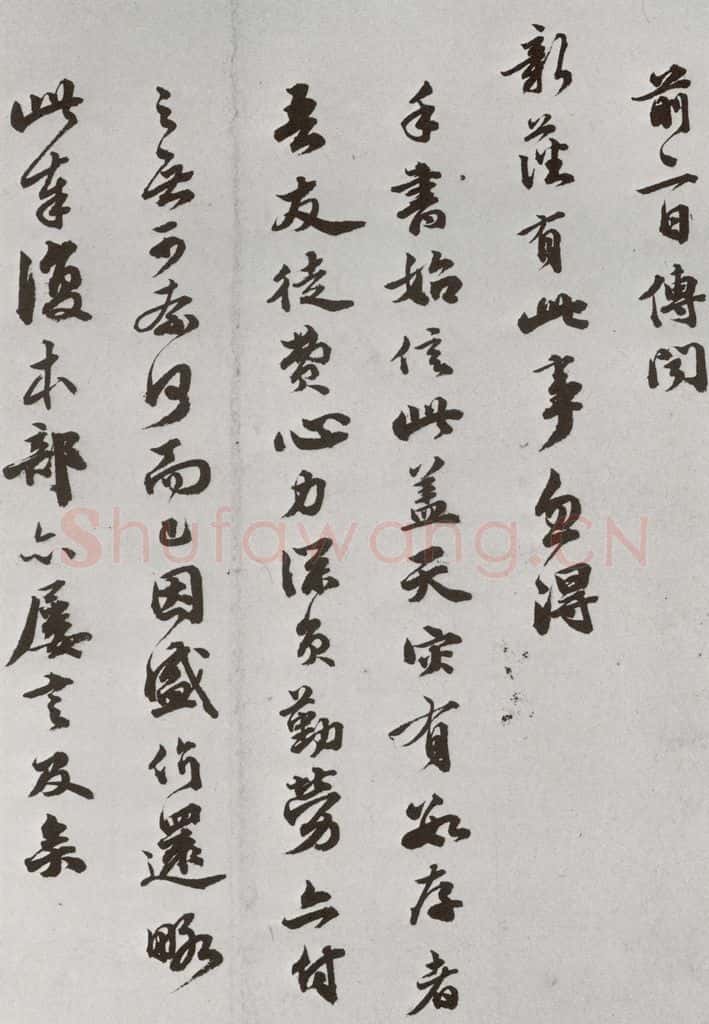 前二日傳聞
新蓙有此事忽得
手書始信此盖天灾有數存者
吾友徒費心力深負勤勞亦付
之無可奈何而已因盛价還略
此奉復本部亦屡言及矣
Shufawang.CN